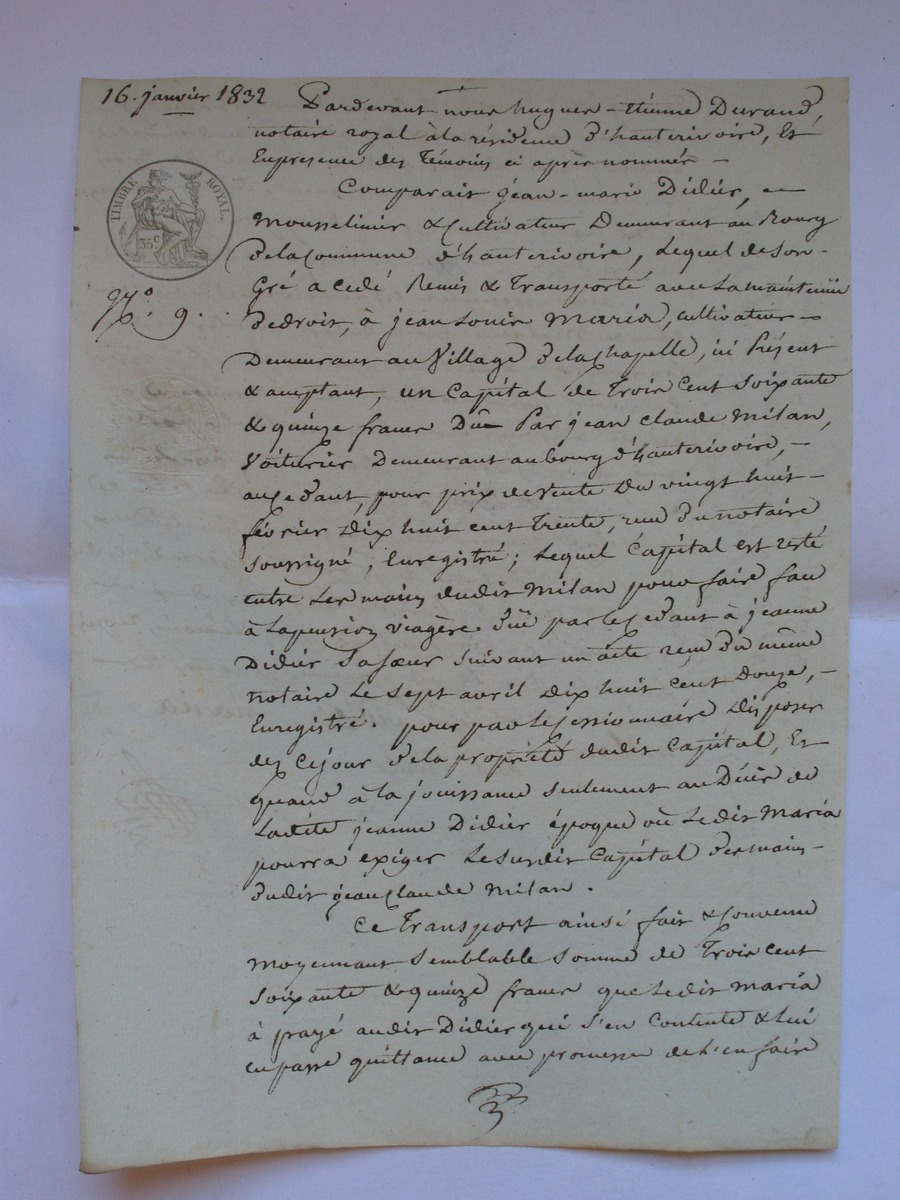 16. janvier 1832
Pardevant nous hugues-étienne Durand,
notaire royal à la résidence d'hauterivoire, Et
En presence des Témoins ci après nommés –
TIMBRE ROYAL.
35 c
N.º 9.
Comparait jean-marie Didier,
Mousselinier & Cultivateur Demeurant au Bourg
De la Commune d'hauterivoire, Lequel de Son
Gré a cedé Remis & Transporté avec La maintenüe
De droit, à jean Louis Maria, cultivateur
Demeurant au Village De la Chapelle, ici Présent
& acceptant, un Capital de Trois Cent Soixante
& quinze francs Dû Par jean Claude Milan,
Voiturier Demeurant au bourg d'hauterivoire, –
au Cedant, pour prix de Vente Du vingt huit
février Dix huit cent Trente, reçu Du notaire
Soussigné, Enregistré; Lequel Capital est resté
entre Les mains dudit Milan pour faire face
à La pension viagère Düe par le Cedant à jeanne
Didier Sa sœur Suivant un acte reçu Du même
notaire Le Sept avril Dix huit Cent Douze, –
Enregistré. pour par le Cessionnaire Disposer
des Ce jour De la propriété dudit Capital, Et
quand à La jouissance Seulement au Décès de
Ladite jeanne Didier époque où Ledit Maria
pourra exiger Le Susdit Capital Des mains
Dudit jean Claude Milan.
Ce Transport ainsi fait & Convenu
Moyennant Semblable Somme de Trois Cent
Soixante & quinze francs que Ledit Maria
à payé audit Didier qui S'en Contente & Lui
en passe quittance avec promesse de L'en faire